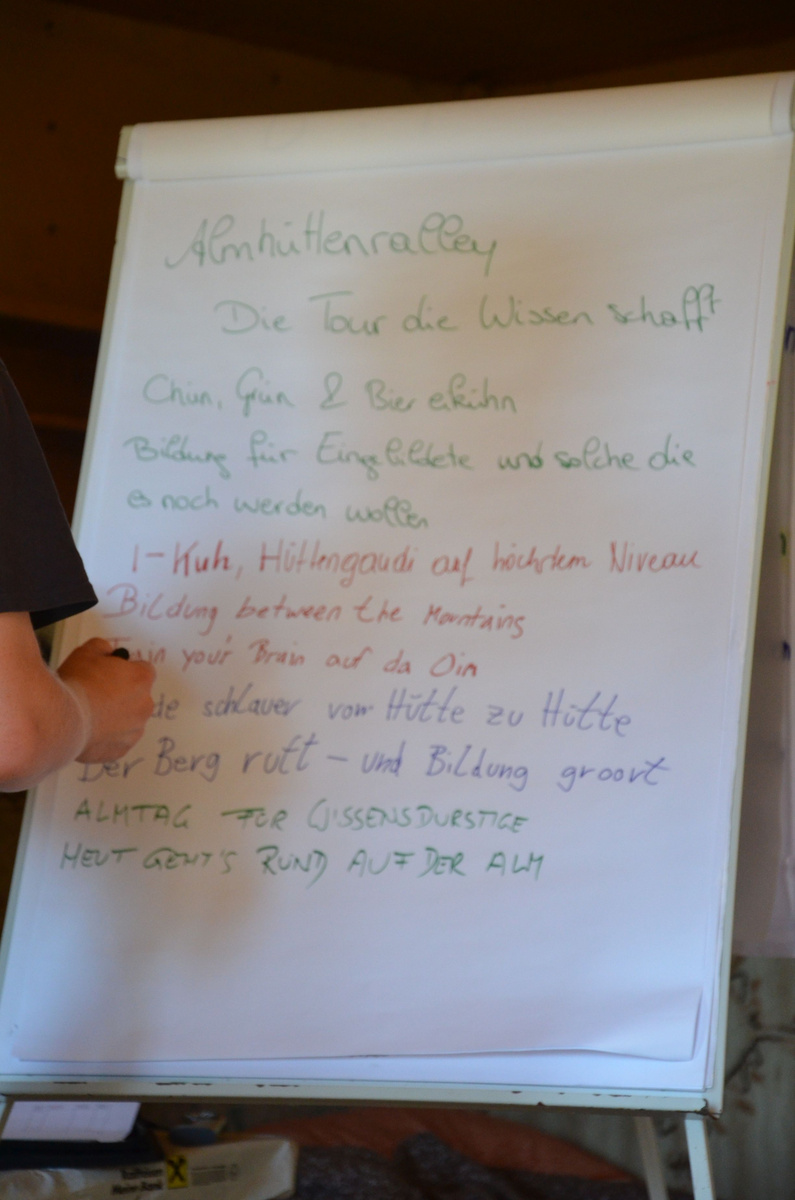 Almhüttenralley
Die Tour die Wissen schafft
Grün & Bier
Bildung für Eingebildete und solche die
es noch werden wollen
I-Kuh, Hüttengaudi auf höchstem Niveau
Bildung between the Mountains
your Brain auf da Oim
schlauer von Hütte zu Hütte
Der Berg ruft - und Bildung groovt
ALMTAG FÜR WISSENSDURSTIGE
HEUT GEHT'S RUND AUF DER ALM